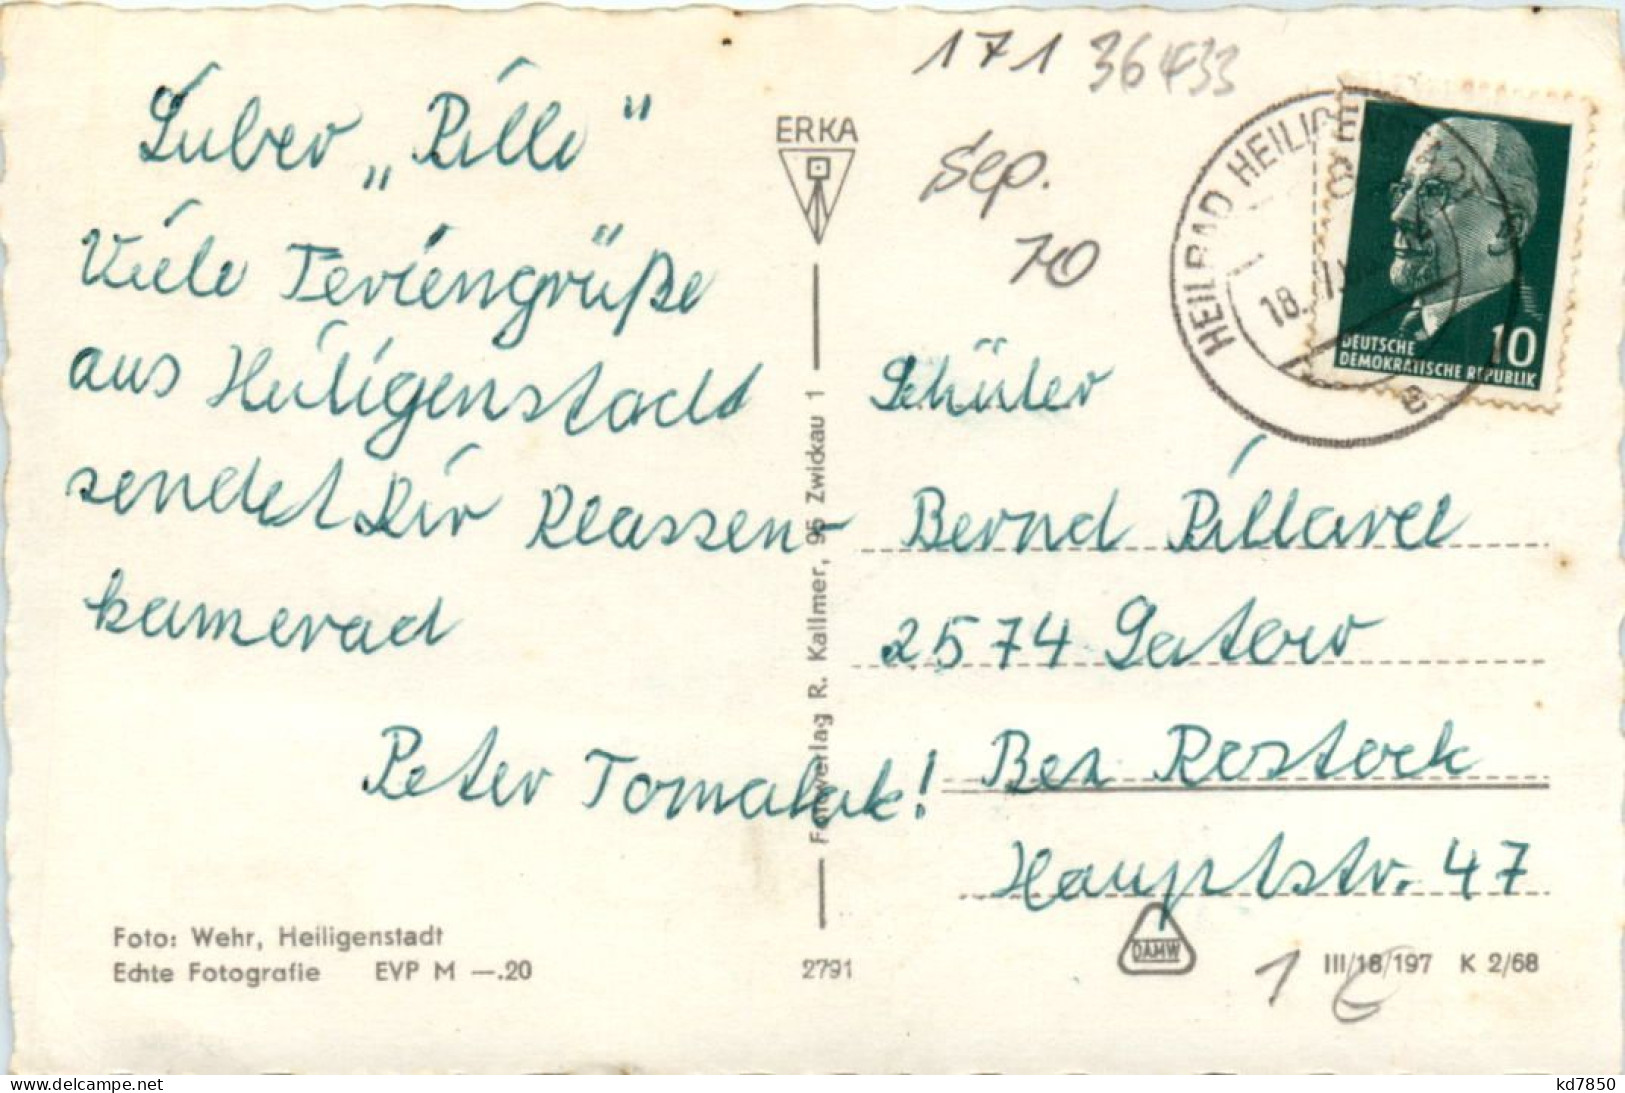 Lieber „Pille"
Viele Feriengrüße
aus Heiligenstadt
sendet Dir Klassen-
kamerad
Peter Tomalak!
Foto: Wehr, Heiligenstadt
Echte Fotografie EVP M —.20
ERKA
Fotoverlag R. Kallmer, 95 Zwickau 1
2791
171 36433
HEILBAD HEILIGENSTADT
18.
e
DEUTSCHE
DEMOKRATISCHE REPUBLIK
10
Schüler
Bernd
2574
Bez Rostock
Hauptstr. 47
DAMW
III/18/197 K 2/68
1 €
www.delcampe.net
kd7850